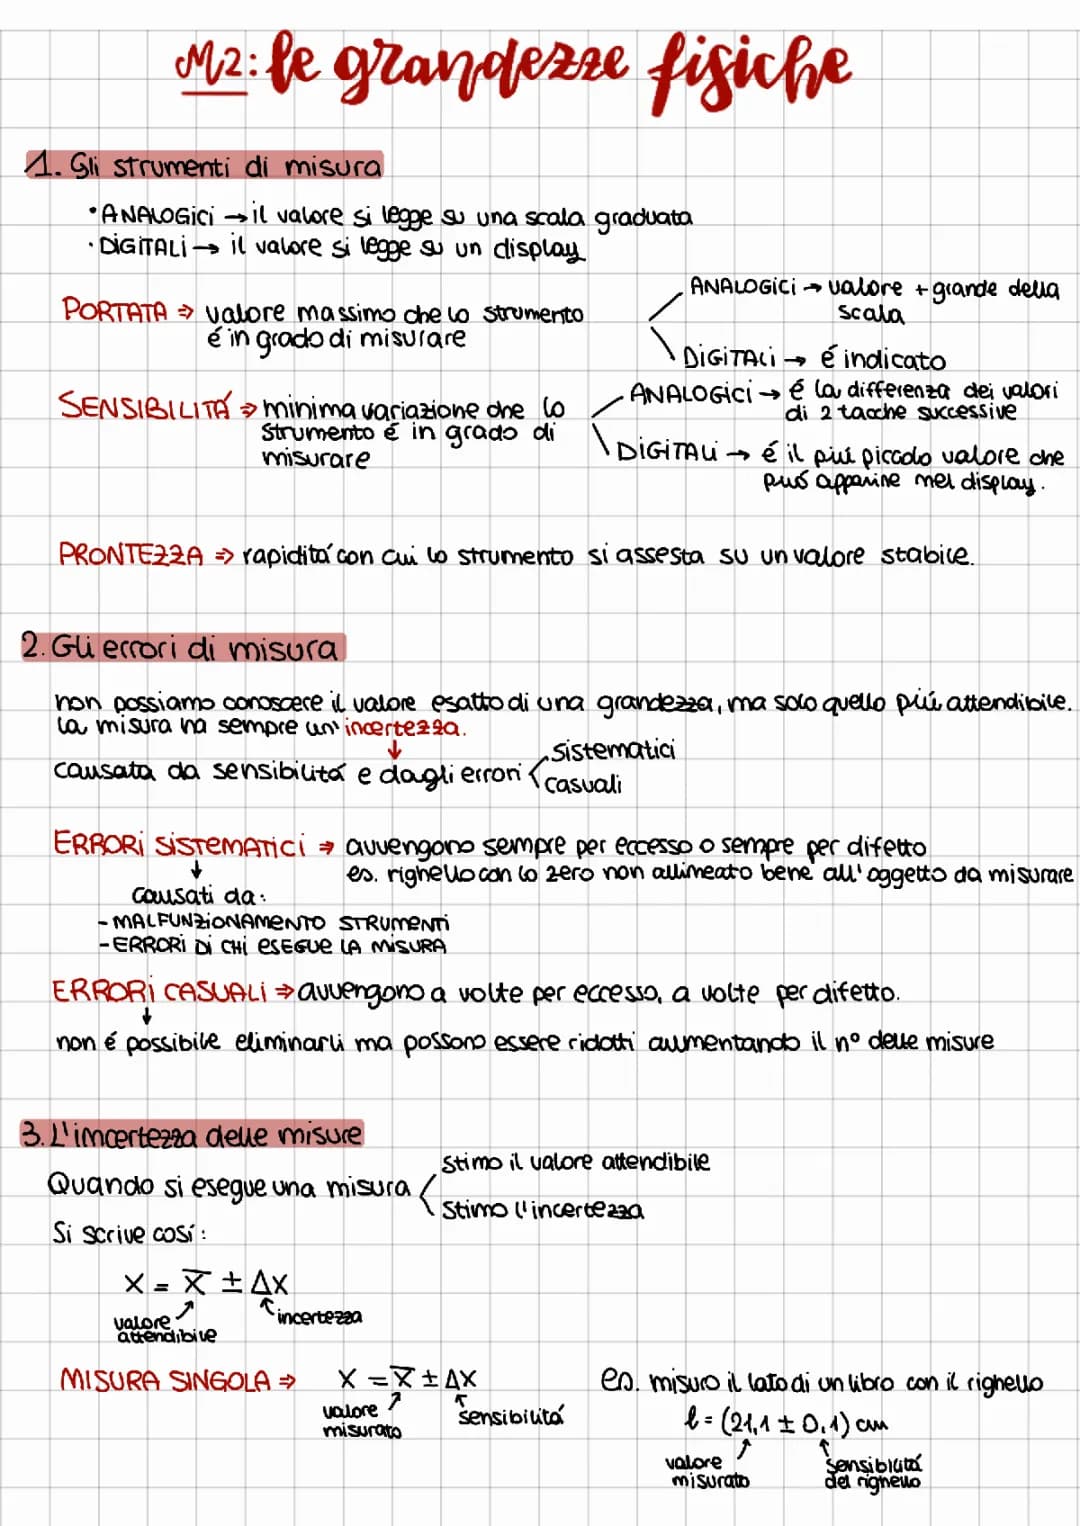 M2: le grandezze fisiche
1. Gli strumenti di misura
• ANALOGICI → il valore si legge su una scala graduata
• DIGITALI → il valore si legge su un display
PORTATA ⇒ valore massimo che lo strumento
é in grado di misurare
ANALOGICI → valore + grande della
scala
DIGITALI → é indicato
SENSIBILITÁ ⇒ minima variazione che lo
strumento é in grado di
misurare
ANALOGICI → é la differenza dei valori
di 2 tacche successive
DIGITALI → é il piú piccolo valore che
puó apparire nel display.
PRONTEZZA ⇒ rapiditá con cui lo strumento si assesta su un valore stabile.
2. Gli errori di misura
non possiamo conoscere il valore esatto di una grandezza, ma solo quello piú attendibile.
la misura ha sempre un' incertezza.
↓
causata da sensibilitá e dagli errori
sistematici
casuali
ERRORI SISTEMATICI ⇒ avvengono sempre per eccesso o sempre per difetto
↓ es. righello con lo zero non allineato bene all'oggetto da misurare
causati da:
- MALFUNZIONAMENTO STRUMENTI
- ERRORI DI CHI ESEGUE LA MISURA
ERRORI CASUALI ⇒ avvengono a volte per eccesso, a volte per difetto.
↓
non é possibile eliminarli ma possono essere ridotti aumentando il n° delle misure
3. L'incertezza delle misure
Quando si esegue una misura
Stimo il valore attendibile
Stimo l'incertezza
Si scrive cosí:
X = X̅ ± ΔX
valore
attendibile
incertezza
MISURA SINGOLA ⇒ X = X̅ ± ΔX
valore
misurato
sensibilitá
es. misuro il lato di un libro con il righello
l = (21,1 ± 0,1) cm
valore
misurato
sensibilitá
del righello